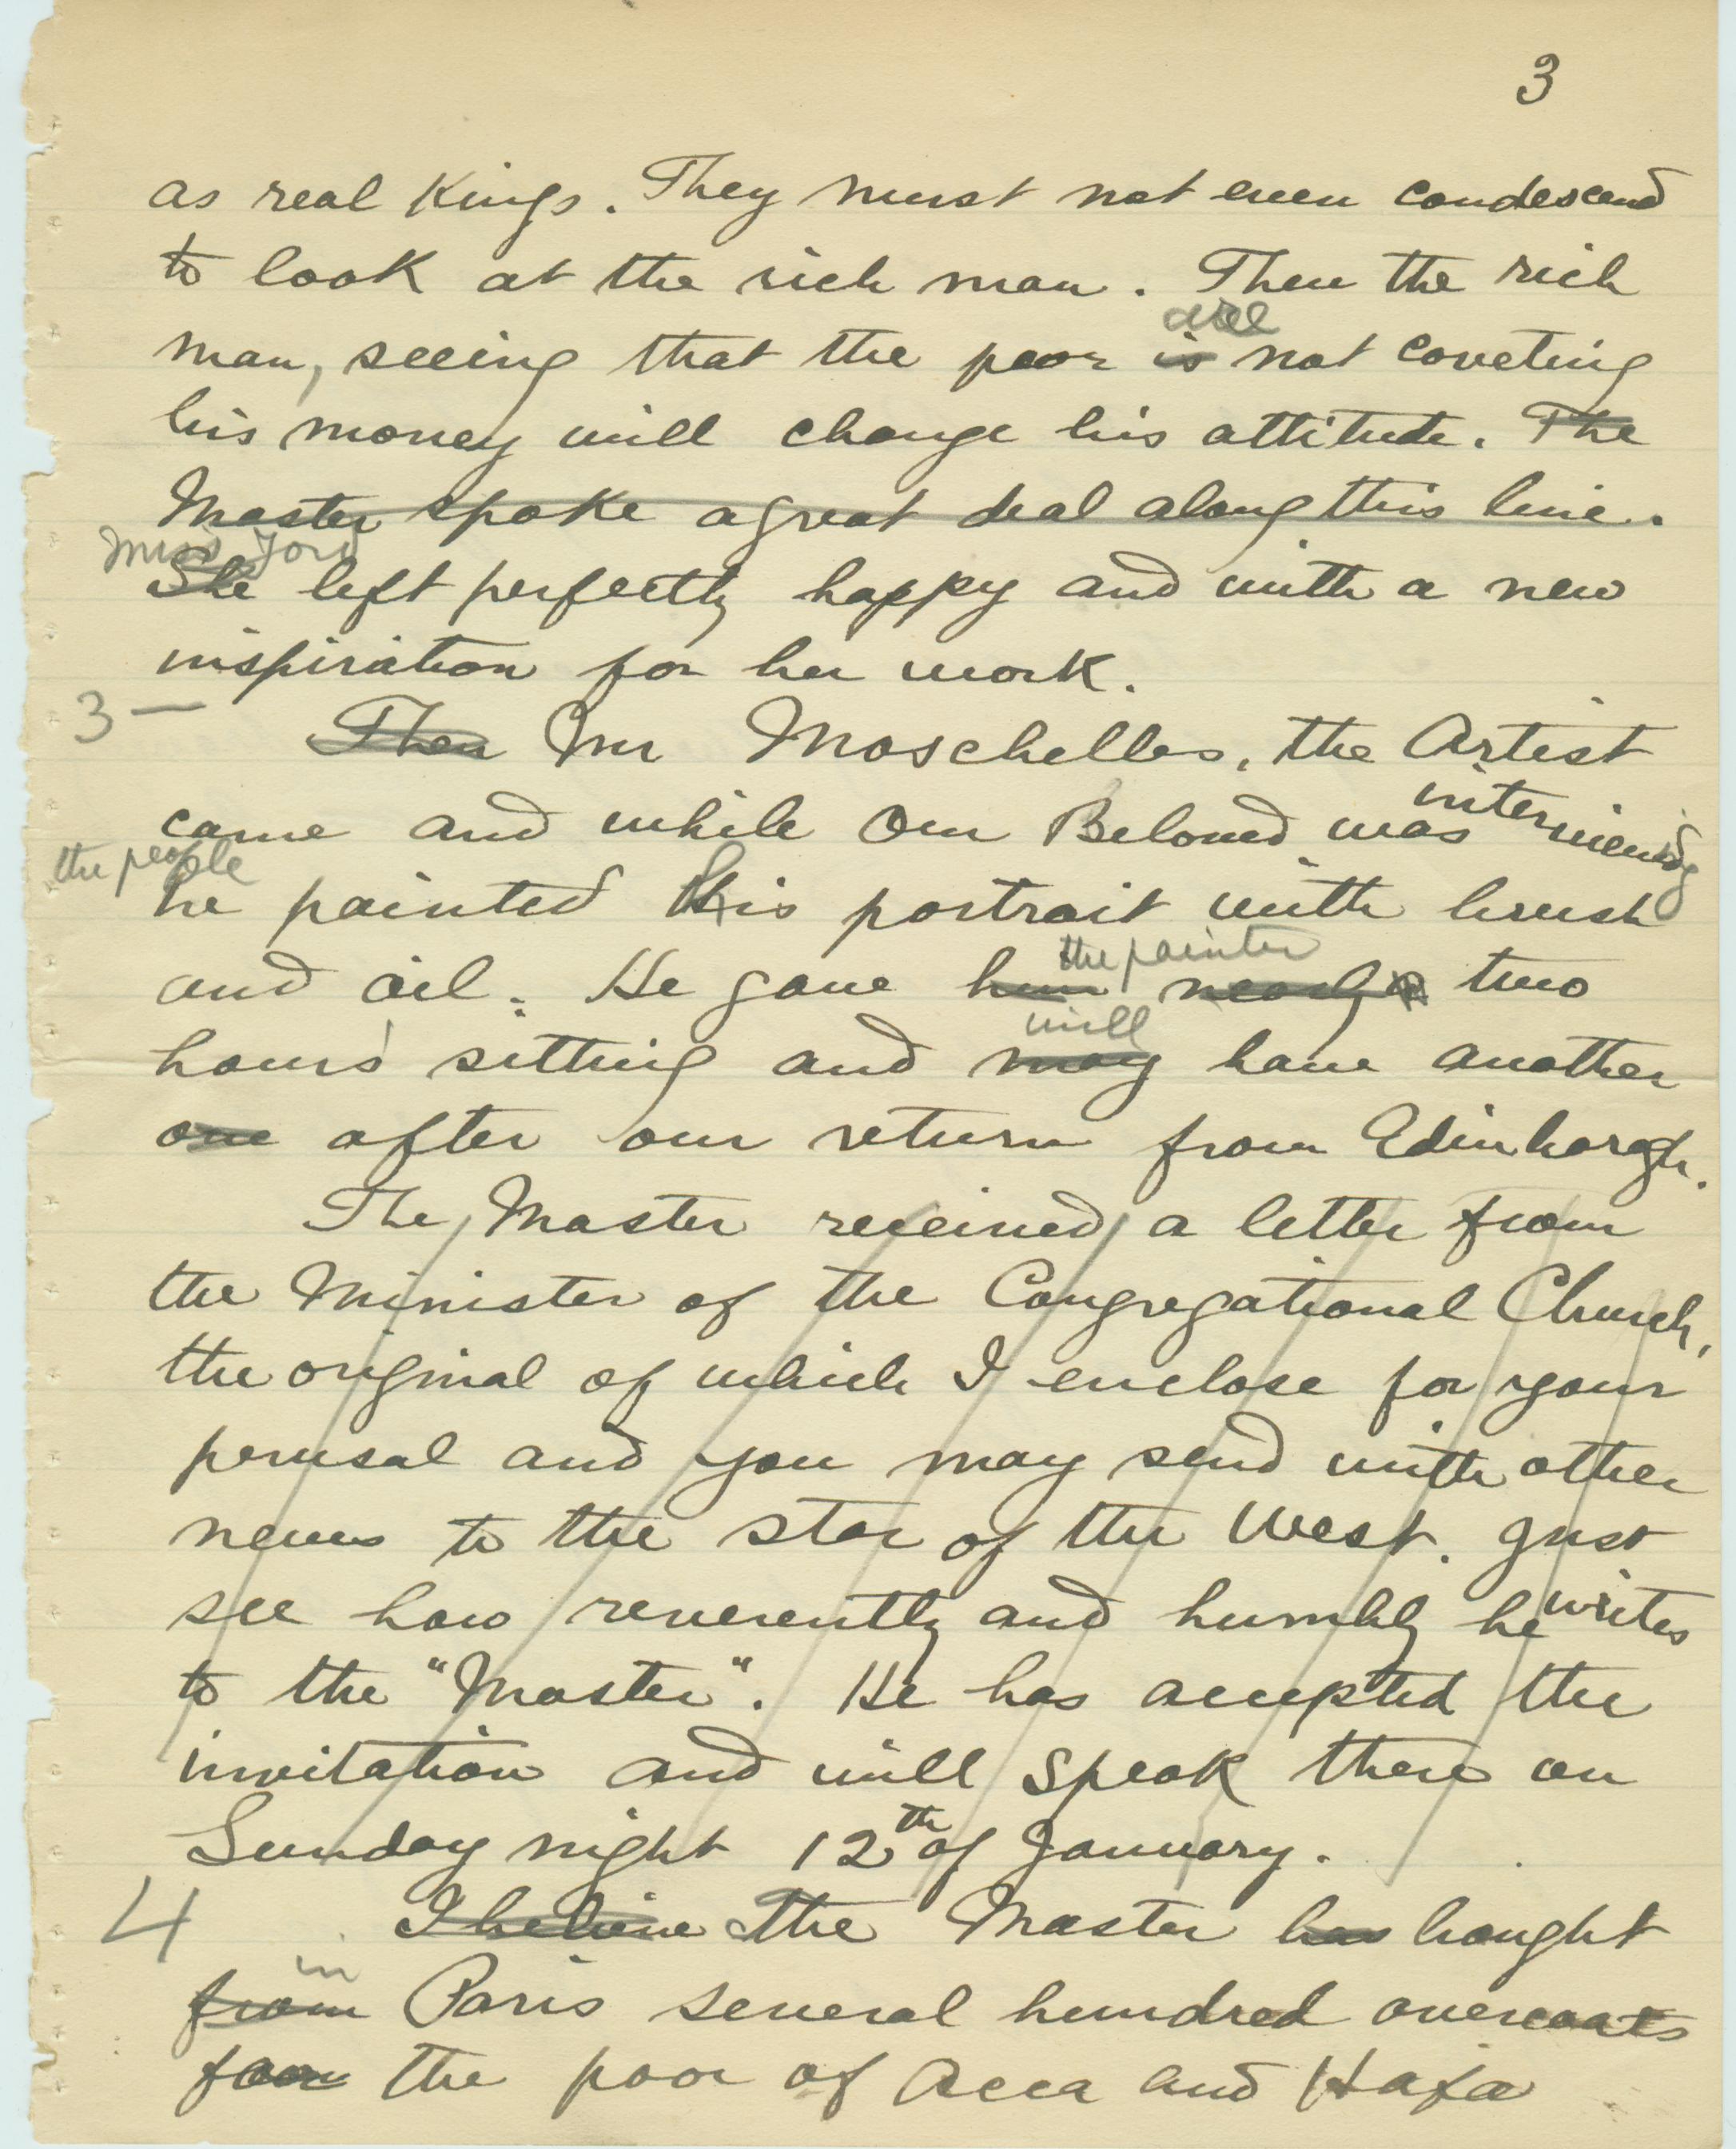 3
as real Kings. They must not even condescend
to look at the rich man. Then the rich
are
man, seeing that the poor is not coveting
his money will change his attitude. The
Master spoke a great deal along this line.
Miss Ford
She left perfectly happy and with a new
inspiration for her work.
3 —
Then Mr Moschelles, the Artist
came and while Our Beloved was interviewing
the people
he painted His portrait with brush
and oil. He gave him nearly two
the painter
hours' sitting and may have another
will
one after our return from Edinborgh.
The Master received a letter from
the Minister of the Congregational Church,
the original of which I enclose for your
perusal and you may send with other
news to the star of the West. Just
see how reverently and humbly he writes
to the "Master". He has accepted the
invitation and will speak there on
Sunday night 12th of January.
4
I believe the Master has bought
in
from Paris several hundred overcoats
for the poor of Acca and Haifa